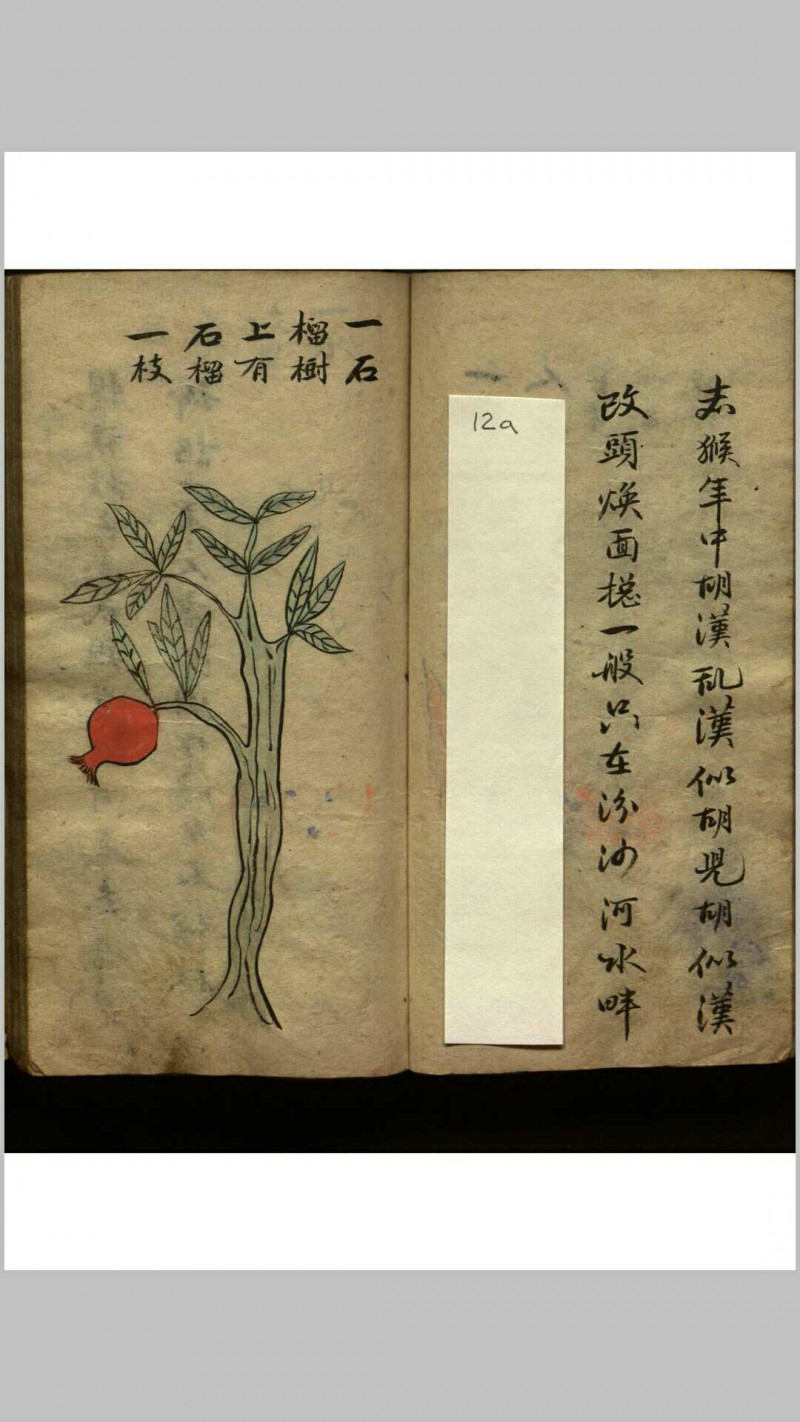 赤猴年中胡漢乱漢似胡児胡似漢
改頭煥面摠一般只在汾沙河水畔
12a
一石
榴樹
上有
石榴
一枝